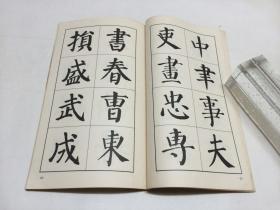 中聿事夫
吏畫忠専
書春曺東
損盛武成